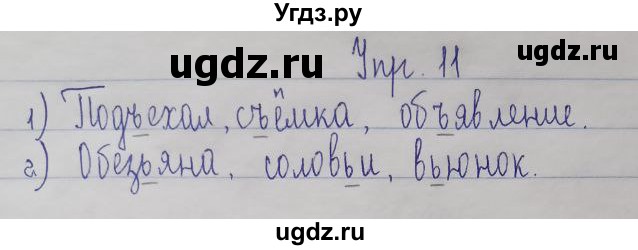 Угдз.ру
ugdz.ru Упр. 11 ugdz.ru
1) Подъехал, съёмка, объявление.
2) Обезьяна, соловьи, вьюнок.
ugdz.ru ugdz.ru